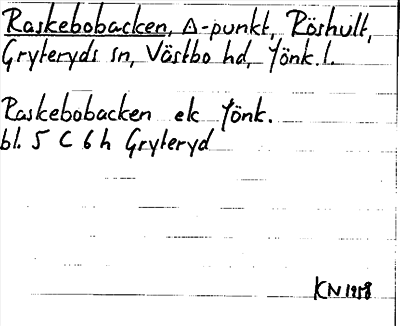 Raskebobacken, △-punkt, Röshult,
Gryteryds sn, Västbo hd, Jönk. l.
Raskebobacken ek Jönk.
bl. 5 C 6 h Gryteryd
KN 1958